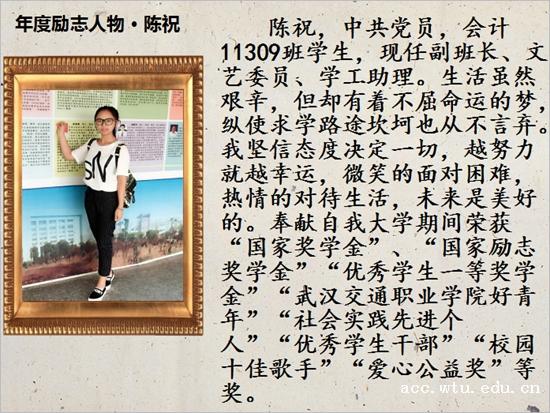 年度励志人物·陈祝
陈祝，中共党员，会计
11309班学生，现任副班长、文
艺委员、学工助理。生活虽然
艰辛，但却有着不屈命运的梦，
纵使求学路途坎坷也从不言弃。
我坚信态度决定一切，越努力
就越幸运，微笑的面对困难，
热情的对待生活，未来是美好
的。奉献自我大学期间荣获
“国家奖学金”、“国家励志
奖学金”“优秀学生一等奖学
金”“武汉交通职业学院好青
年”“社会实践先进个
人”“优秀学生干部”“校园
十佳歌手”“爱心公益奖”等
奖。
acc.wtu.edu.cn